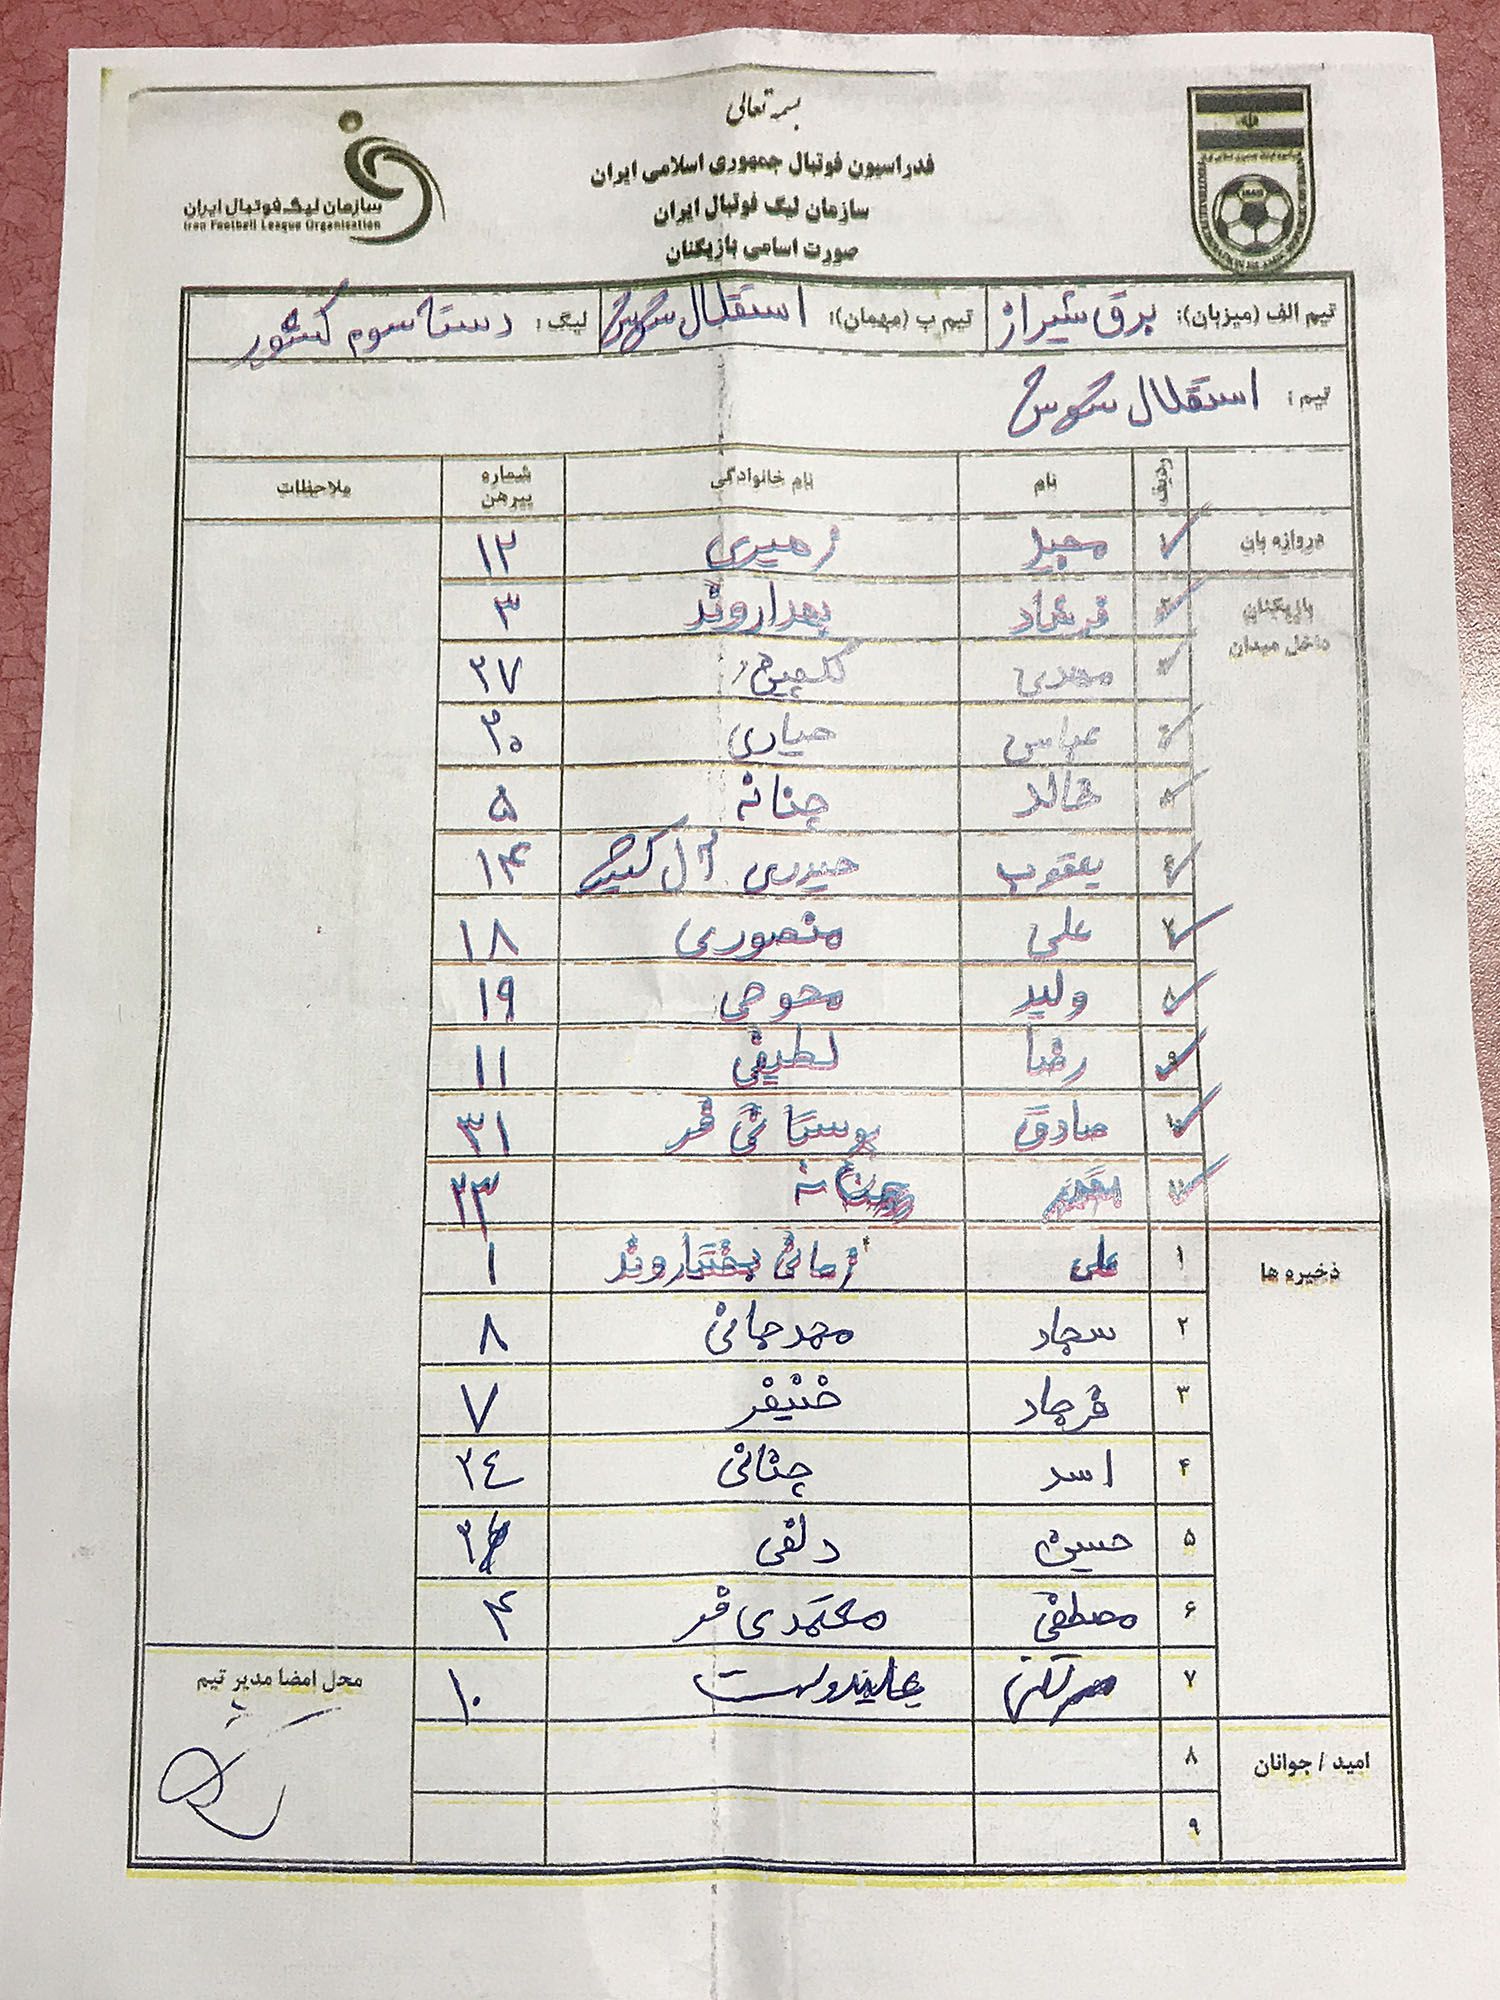 بسمه تعالی
فدراسیون فوتبال جمهوری اسلامی ایران
سازمان لیگ فوتبال ایران
صورت اسامی بازیکنان
سازمان لیگ فوتبال ایران
Iran Football League Organisation
تیم الف (میزبان): برق شیراز تیم ب (مهمان): استقلال شوش لیگ: دسته سوم کشور
تیم: استقلال شوش
ردیف نام نام خانوادگی شماره پیرهن ملاحظات
دروازه بان ۱ مجید زهیری ۱۲
بازیکنان داخل میدان ۲ فرشاد بهداروند ۳
۳ مهدی ۲۷
۴ عباس حیاری ۲۰
۵ خالد چنانه ۵
۶ یعقوب حیدری آل کثیر ۱۴
۷ علی منصوری ۱۸
۸ ولید محوحی ۱۹
۹ رضا لطیفی ۱۱
۱۰ صادق بوستانی فر ۳۱
۱۱ چنانه ۲۳
ذخیره ها ۱ علی زمانی بختیاروند ۱
۲ سجاد مهدجانی ۸
۳ فرهاد خنیفر ۷
۴ اسد چنانی ۲۴
۵ حسین دلفی
۶ مصطفی محمدی فر ۴
۷ علیدوست ۱۰
امید / جوانان ۸
۹
محل امضا مدیر تیم